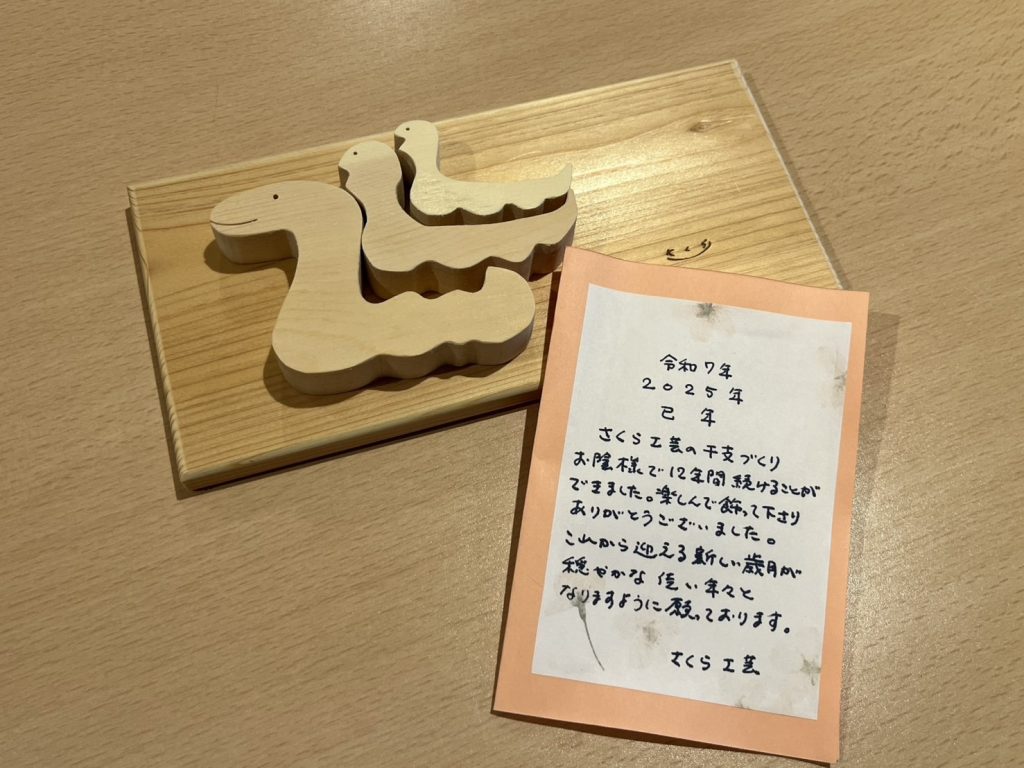 令和7年
2025年
巳年
さくら工芸の干支づくり
お陰様で12年間続けることが
できました。楽しんで飾って下さり
ありがとうございました。
これから迎える新しい歳月が
穏やかな佳い年々と
なりますように願っております。
さくら工芸